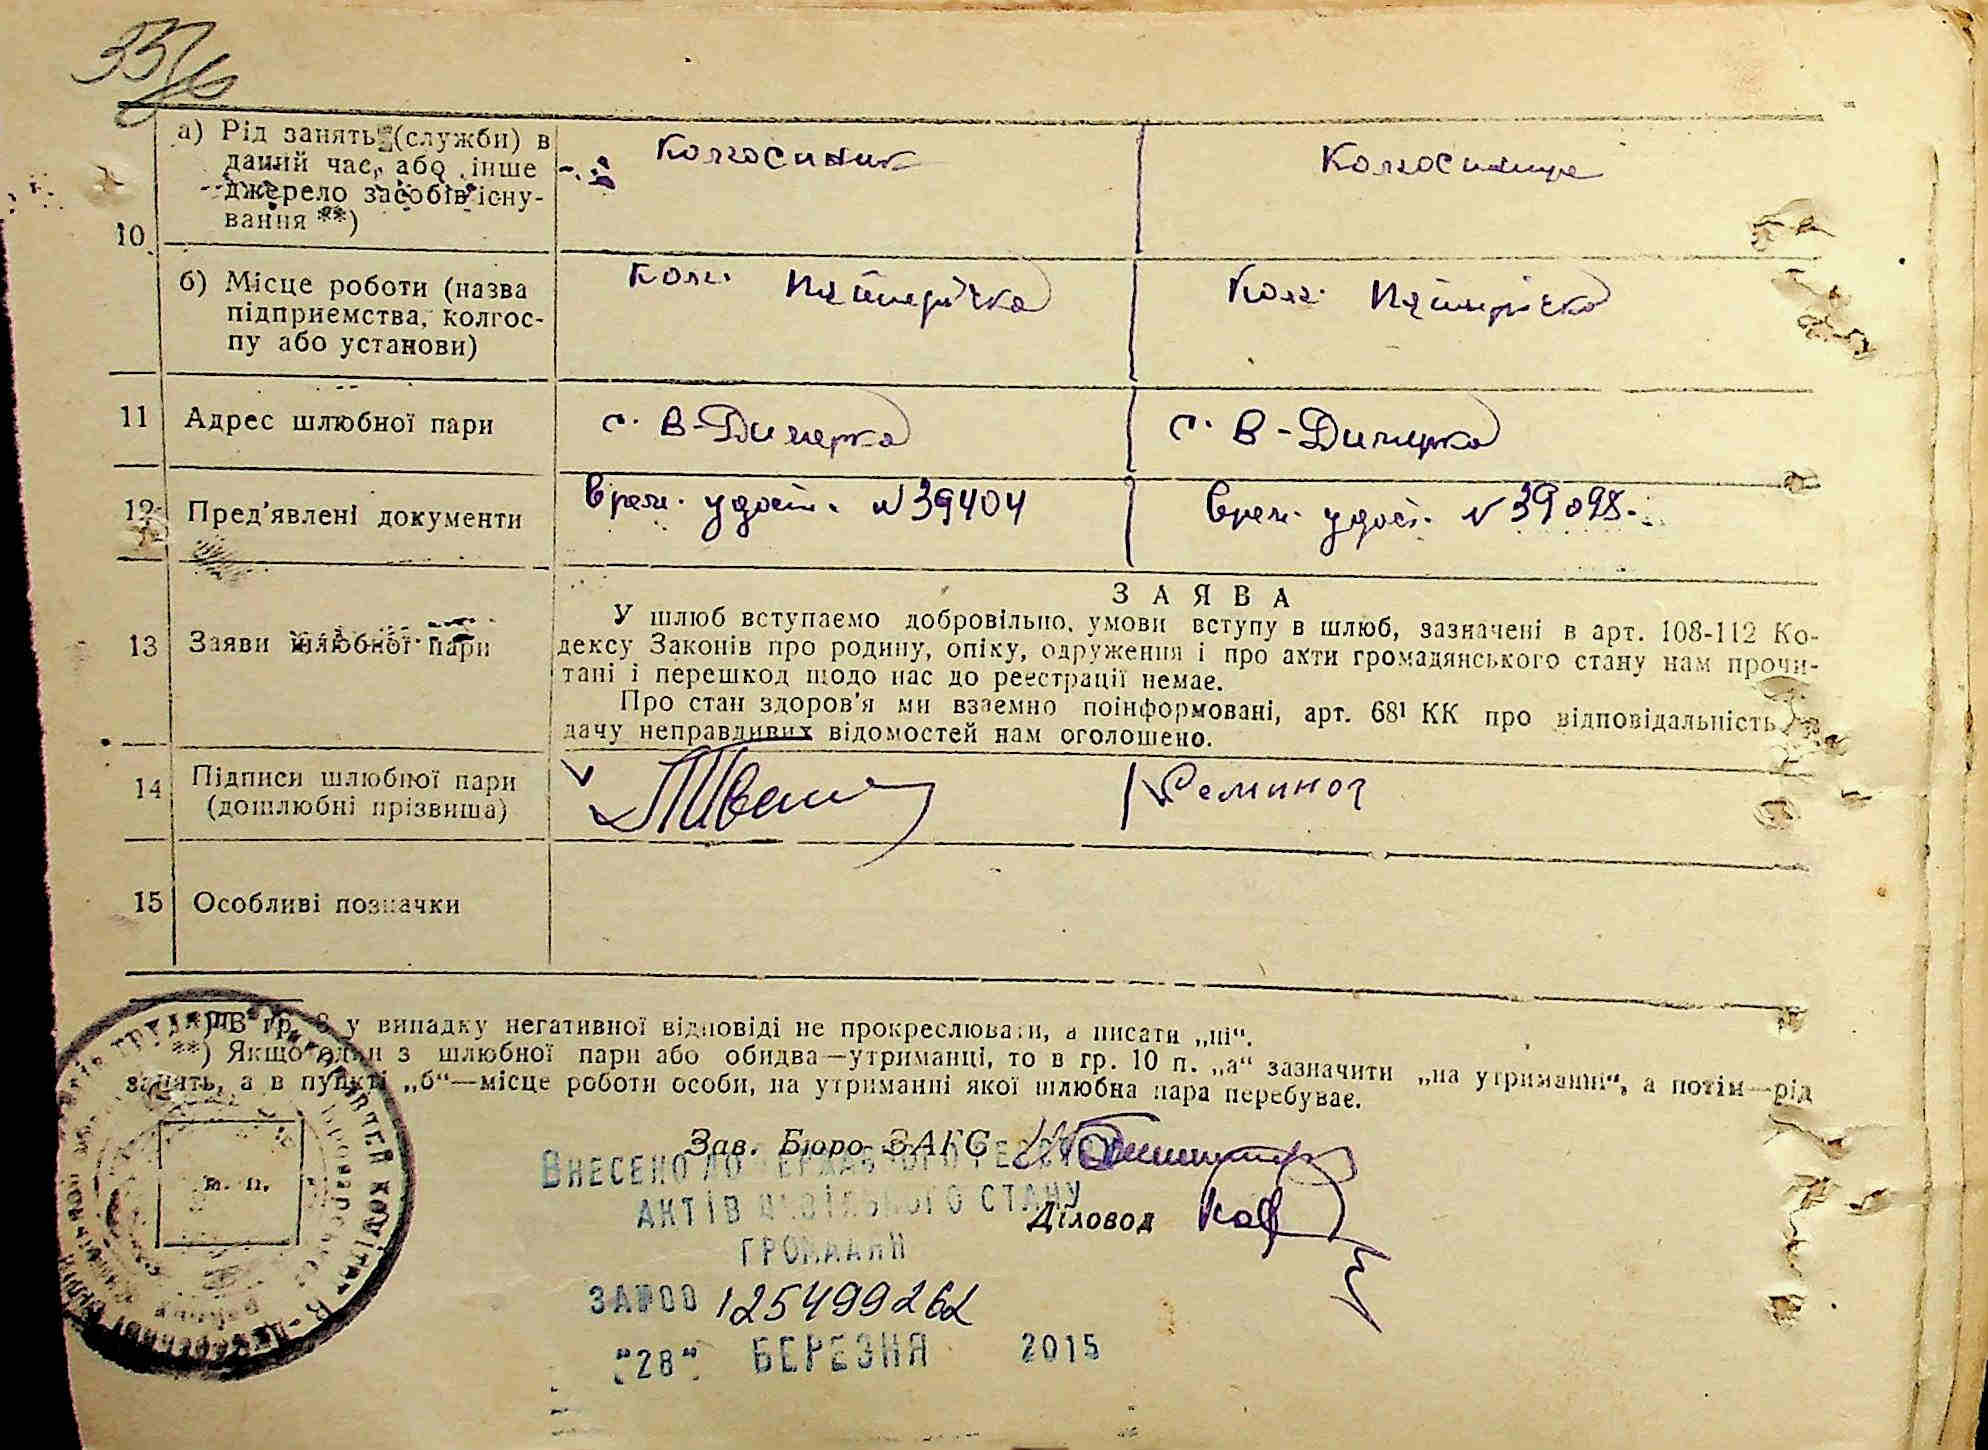 а) Рід занять (службн) в
даний час, або інше
джерело засобів існу-
вання **)
Колгоспник
Колгоспниця
10
б) Місце роботи (назва
підприємства, колгос-
пу або установи)
Колг. Пятирічка
Колг. Пятирічка
11
Адрес шлюбної пари
с. В-Димерка
с. В-Димерка
12
Пред'явлені документи
Врем. удост. N 39404
Врем. удост. N 39098.
13
Заяви шлюбної пари
ЗАЯВА
У шлюб вступаємо добровільно, умови вступу в шлюб, зазначені в арт. 108-112 Ко-
дексу Законів про родину, опіку, одруження і про акти громадянського стану нам прочи-
тані і перешкод щодо нас до реєстрації немає.
Про стан здоров'я ми взаємно поінформовані, арт. 68¹ КК про відповідальність за
дачу неправдивих відомостей нам оголошено.
14
Підписи шлюбної пари
(дошлюбні прізвища)
15
Особливі позначки
*) В гр. 8 у випадку негативної відповіді не прокреслювати, а писати „ні“.
**) Якщо один з шлюбної пари або обидва—утриманці, то в гр. 10 п. „а“ зазначити „на утриманні“, а потім—рід
занять, а в пункті „б“—місце роботи особи, на утриманні якої шлюбна пара перебуває.
м. п.
Зав. Бюро ЗАГС
Діловод
ВНЕСЕНО ДО ДЕРЖАВНОГО РЕЄСТРУ
АКТІВ ЦИВІЛЬНОГО СТАНУ
ГРОМАДЯН
ЗА №00 125499262
"28" БЕРЕЗНЯ 2015